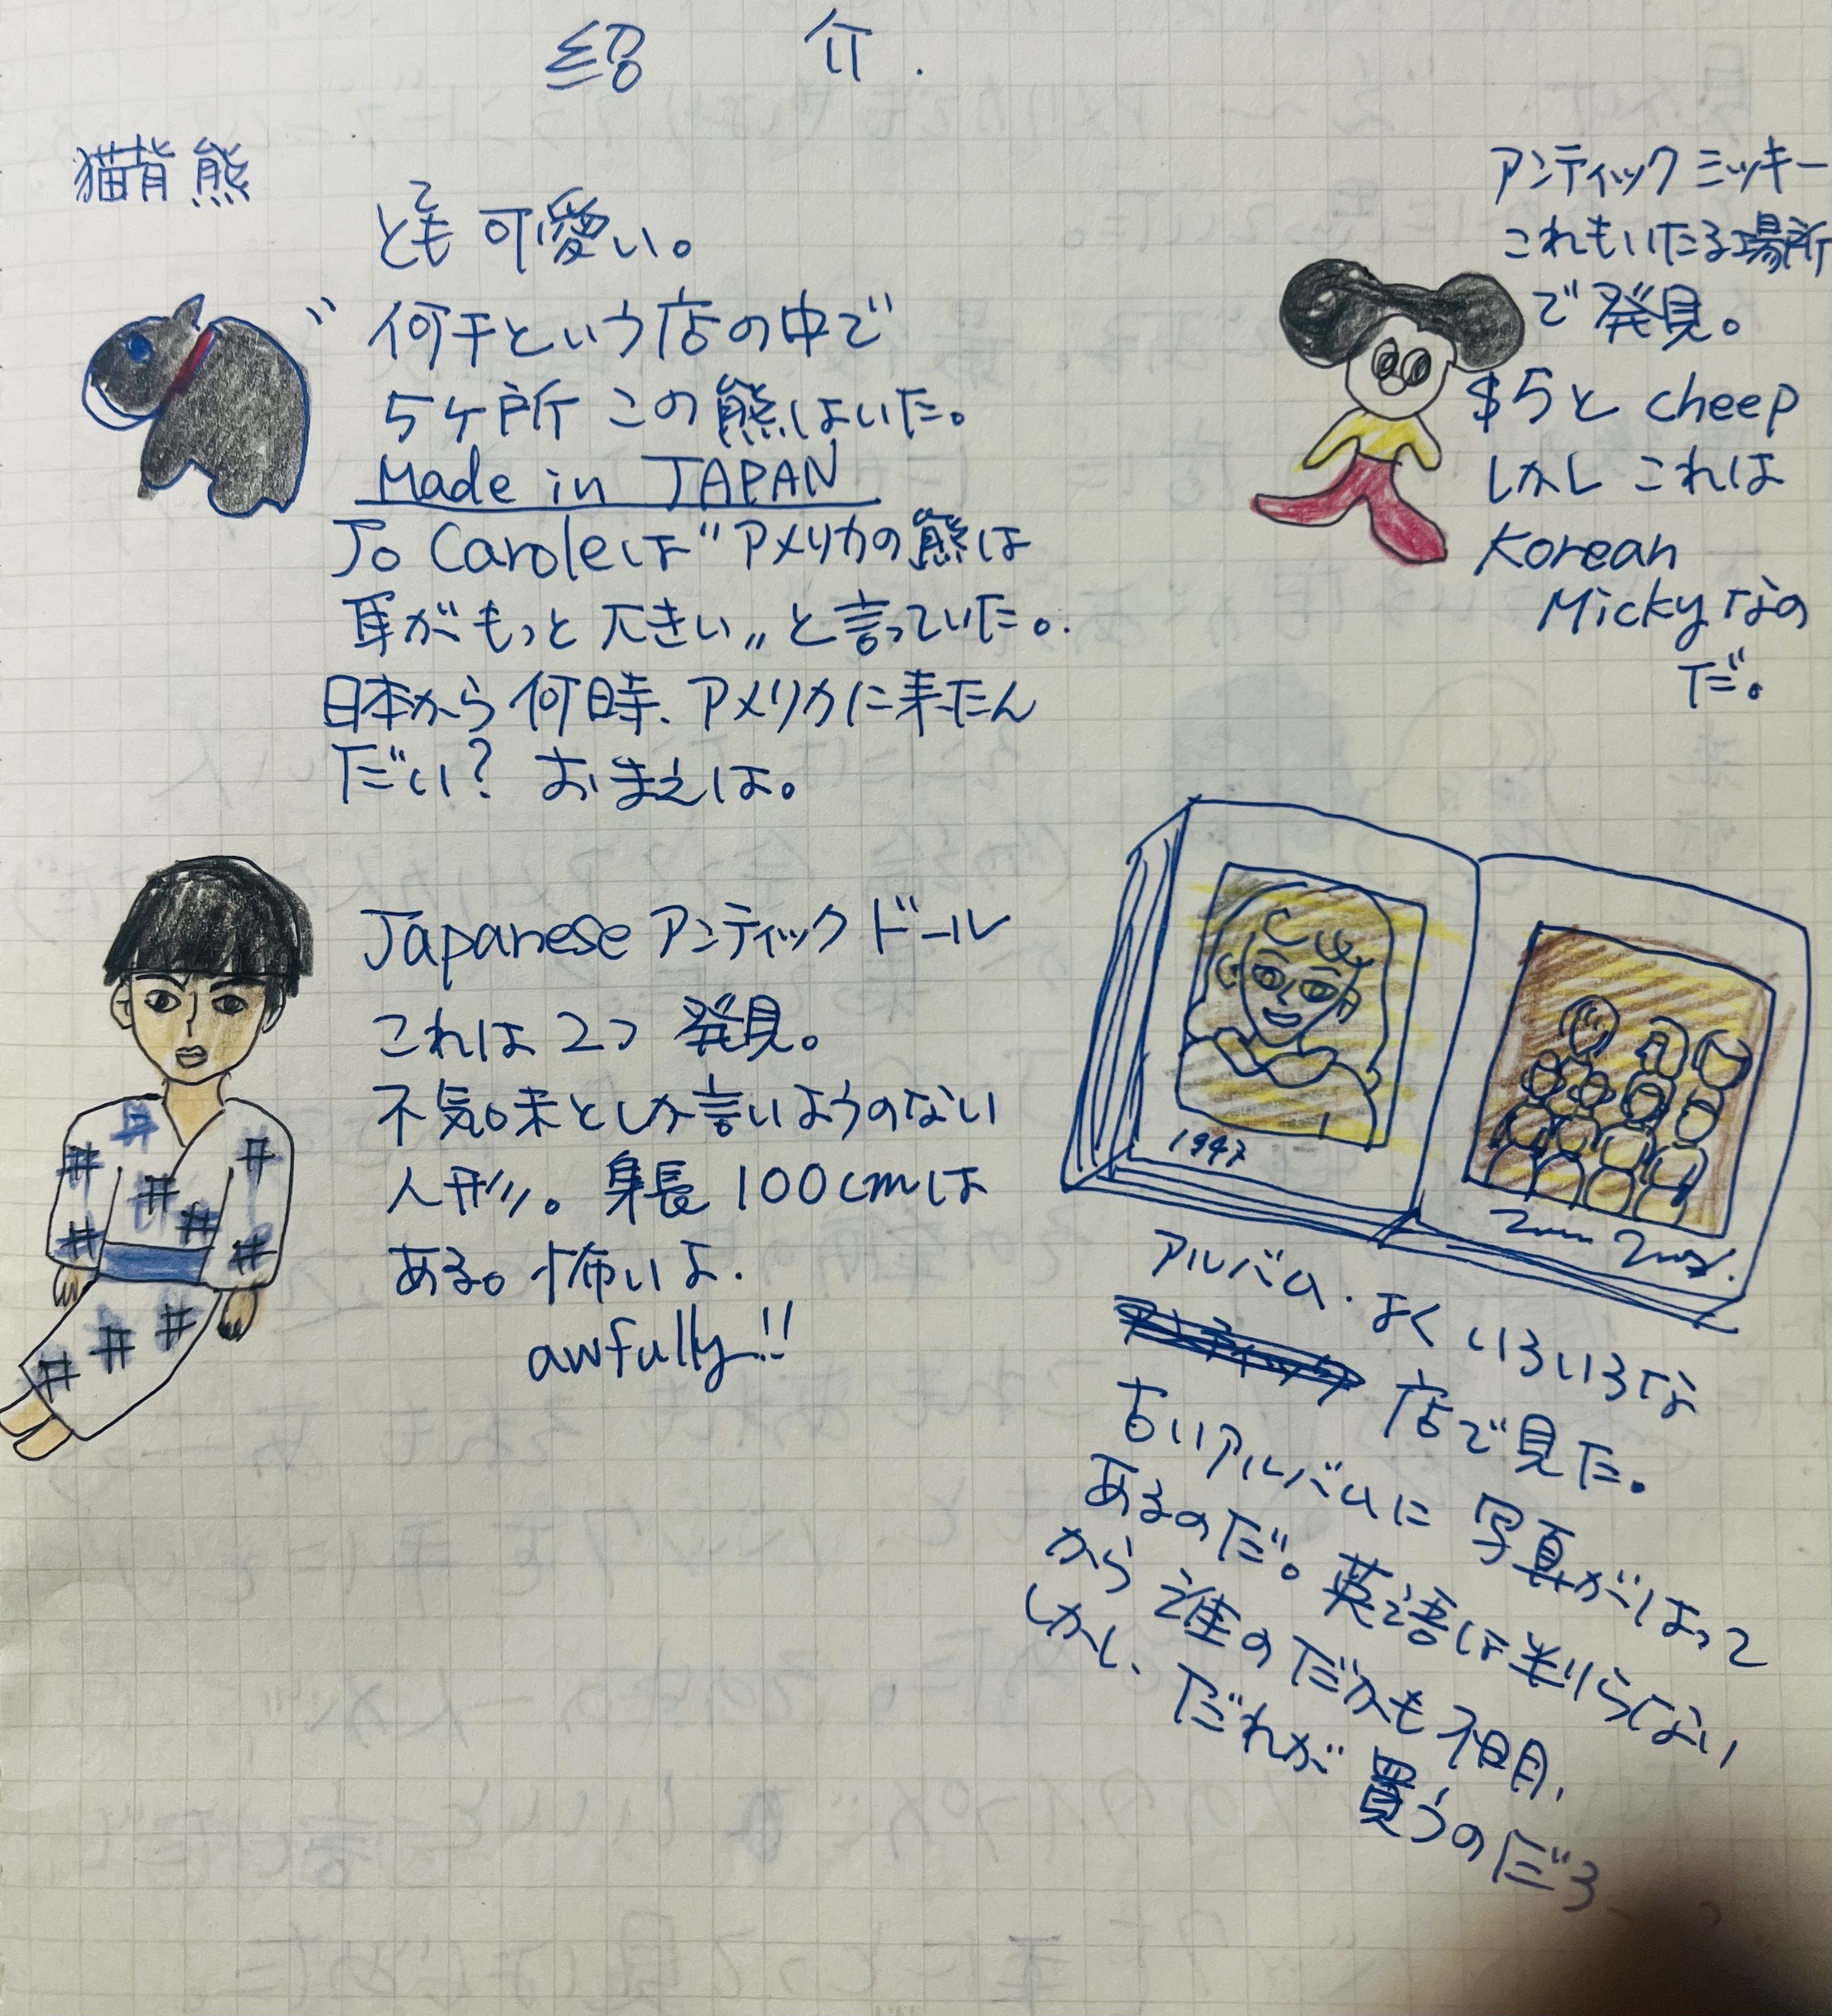 紹 介.
猫背熊
とても可愛い。
何千という店の中で
5ヶ所 この熊はいた。
Made in JAPAN
Jo Caroleは"アメリカの熊は
耳がもっと大きい〃と言っていた。
日本から何時、アメリカに来たん
だい? おまえは。
アンティック ミッキー
これもいたる場所
で発見。
$5と cheep
しかし これは
Korean
Mickyなの
だ。
Japanese アンティック ドール
これは2つ 発見。
不気味としか言いようのない
人形。身長 100cmは
ある。怖いよ.
awfully!!
1947
アルバム. よく いろいろな
店で見た。
古いアルバムに 写真がはって
あるのだ。英語は判らない
から 誰のだかも不明、
しかし、だれが 買うのだろ